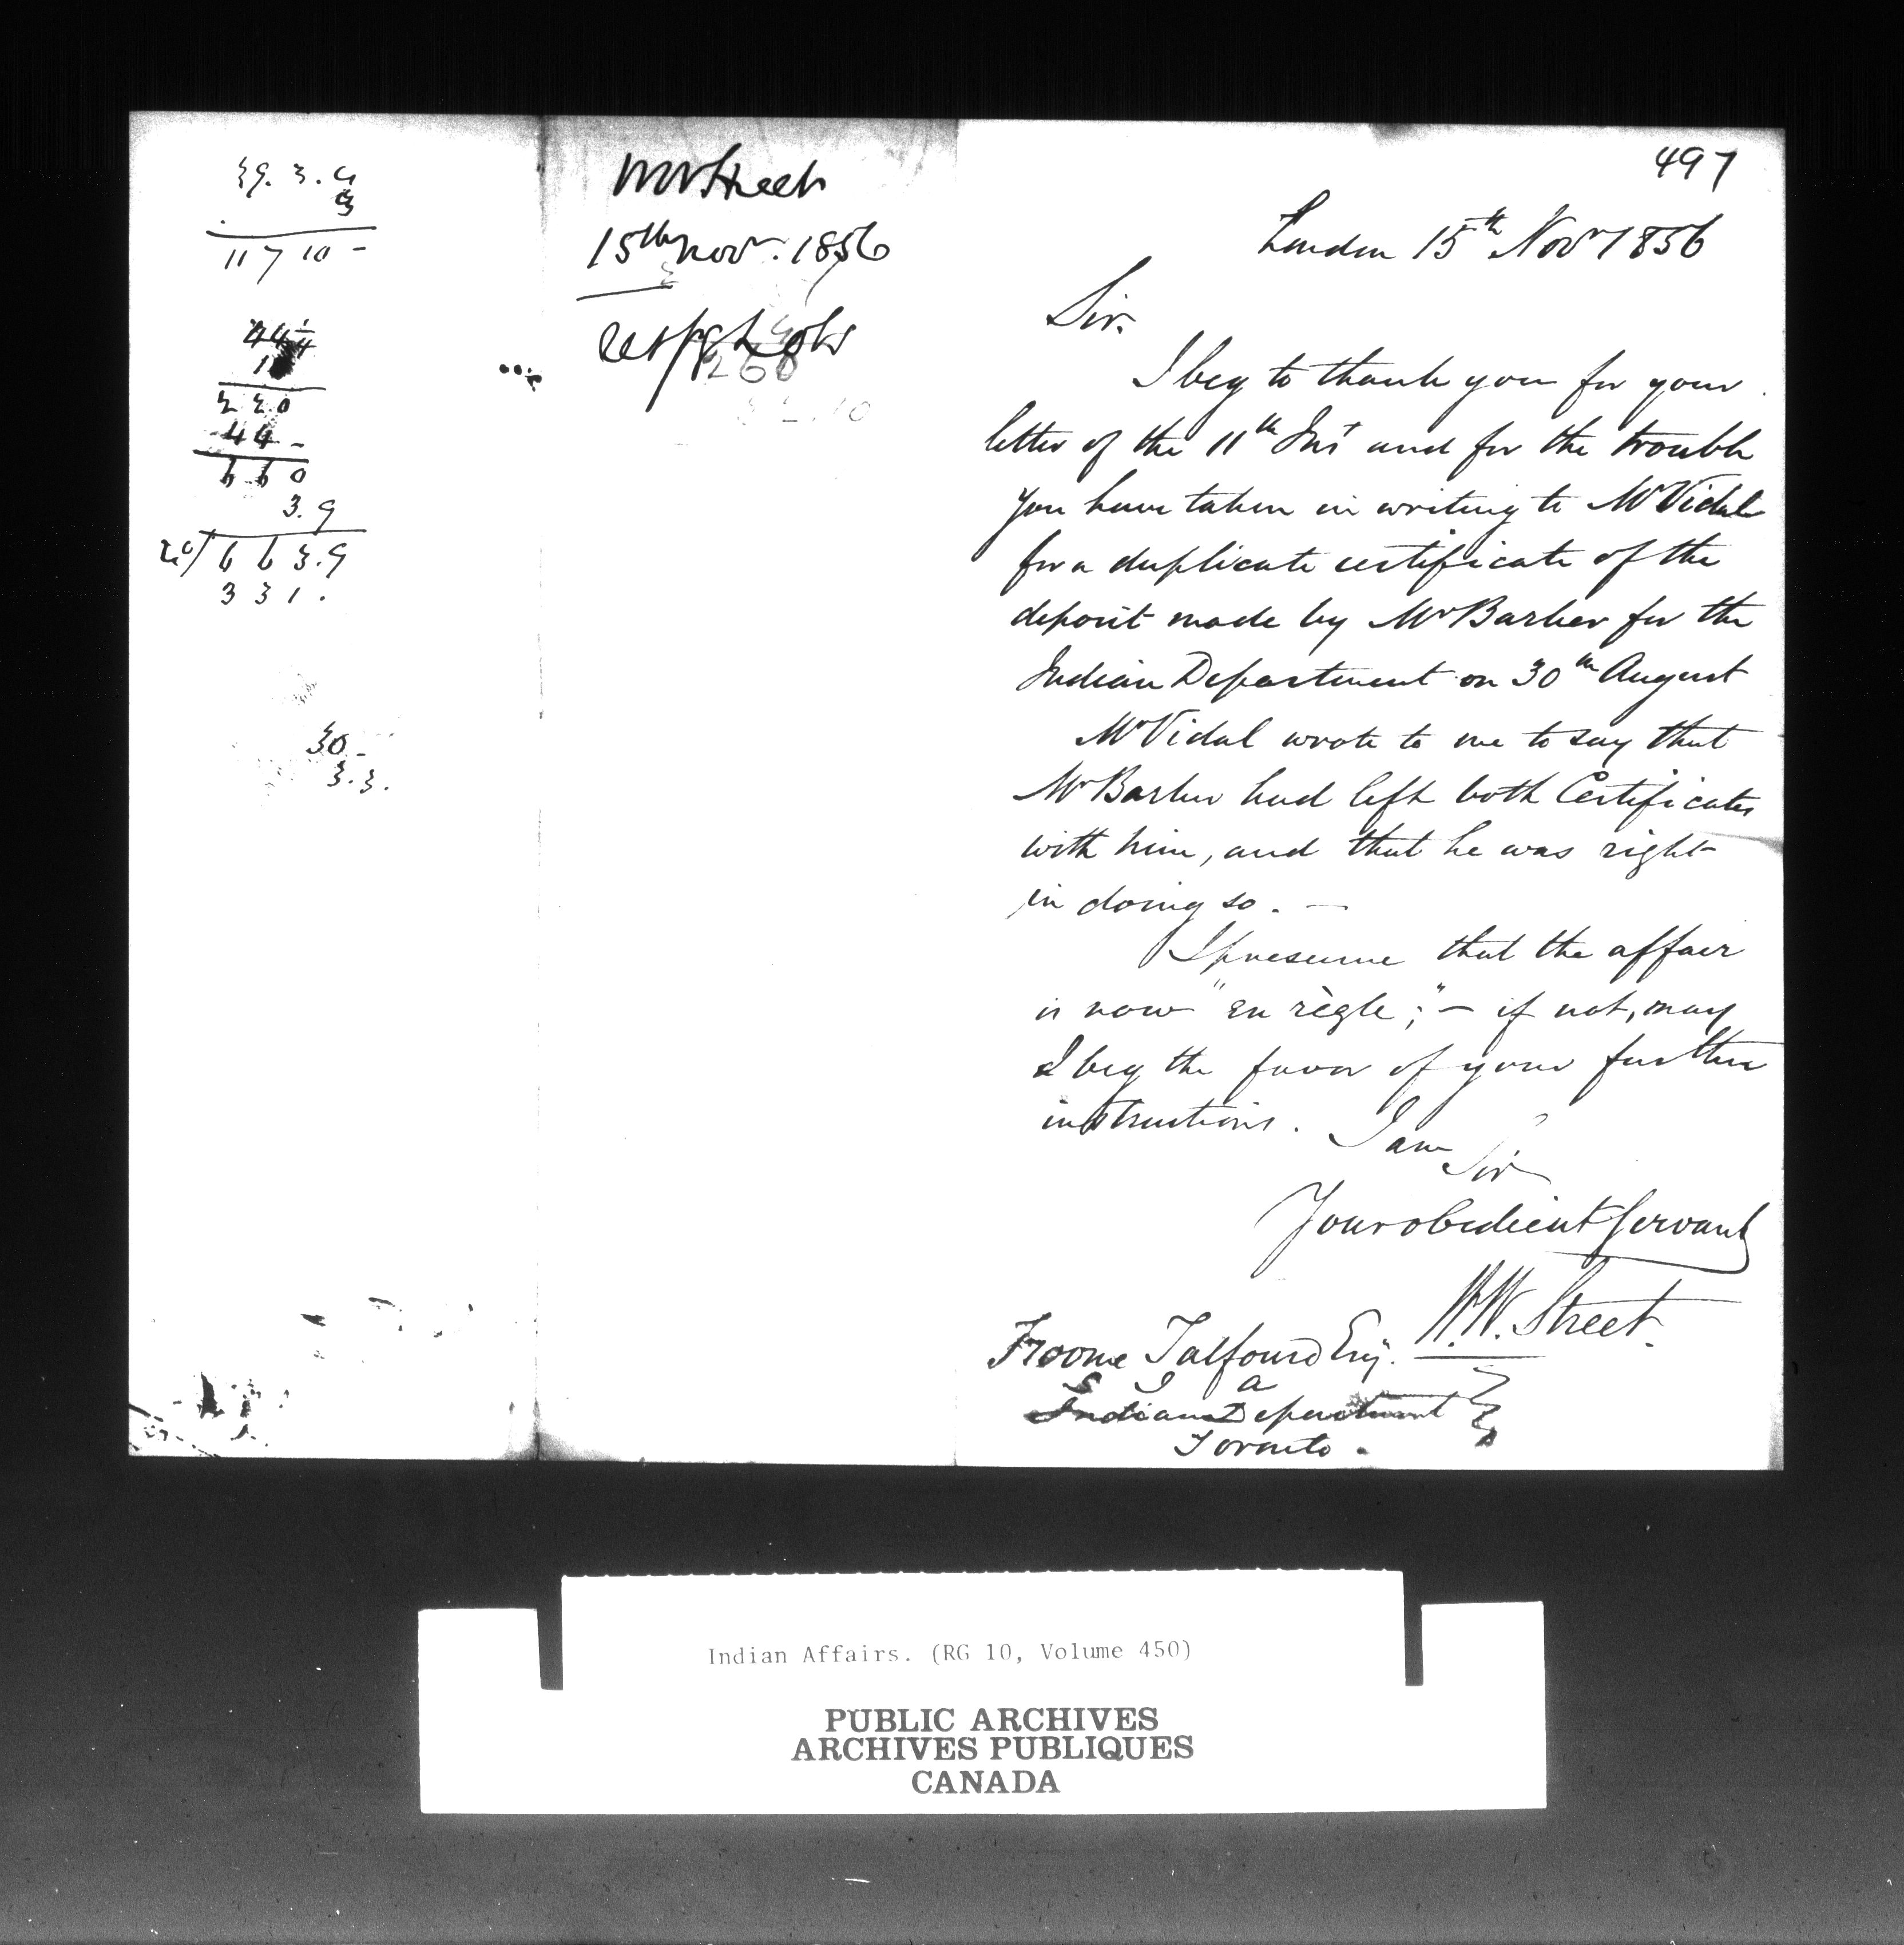 39. 3. 4
3
11 7 10 -
44
220
44 -
660
3.9
20) 663.9
331.
30 -
3.3.
WW Street
15th Novr. 1856
260
497
London 15th Novr 1856
Sir.
I beg to thank you for your
letter of the 11th Inst and for the trouble
you have taken in writing to Mr Vidal
for a duplicate certificate of the
deposit made by Mr Barber for the
Indian Department on 30th August
Mr Vidal wrote to me to say that
Mr Barber had left both Certificates
with him, and that he was right
in doing so. —
I presume that the affair
is now "en règle;" — if not, may
I beg the favor of your further
instructions. I am
Sir
Your obedient Servant
W.W. Street.
Froome Talfourd Esq.
S I a
Indian Department
Toronto.
Indian Affairs. (RG 10, Volume 450)
PUBLIC ARCHIVES
ARCHIVES PUBLIQUES
CANADA